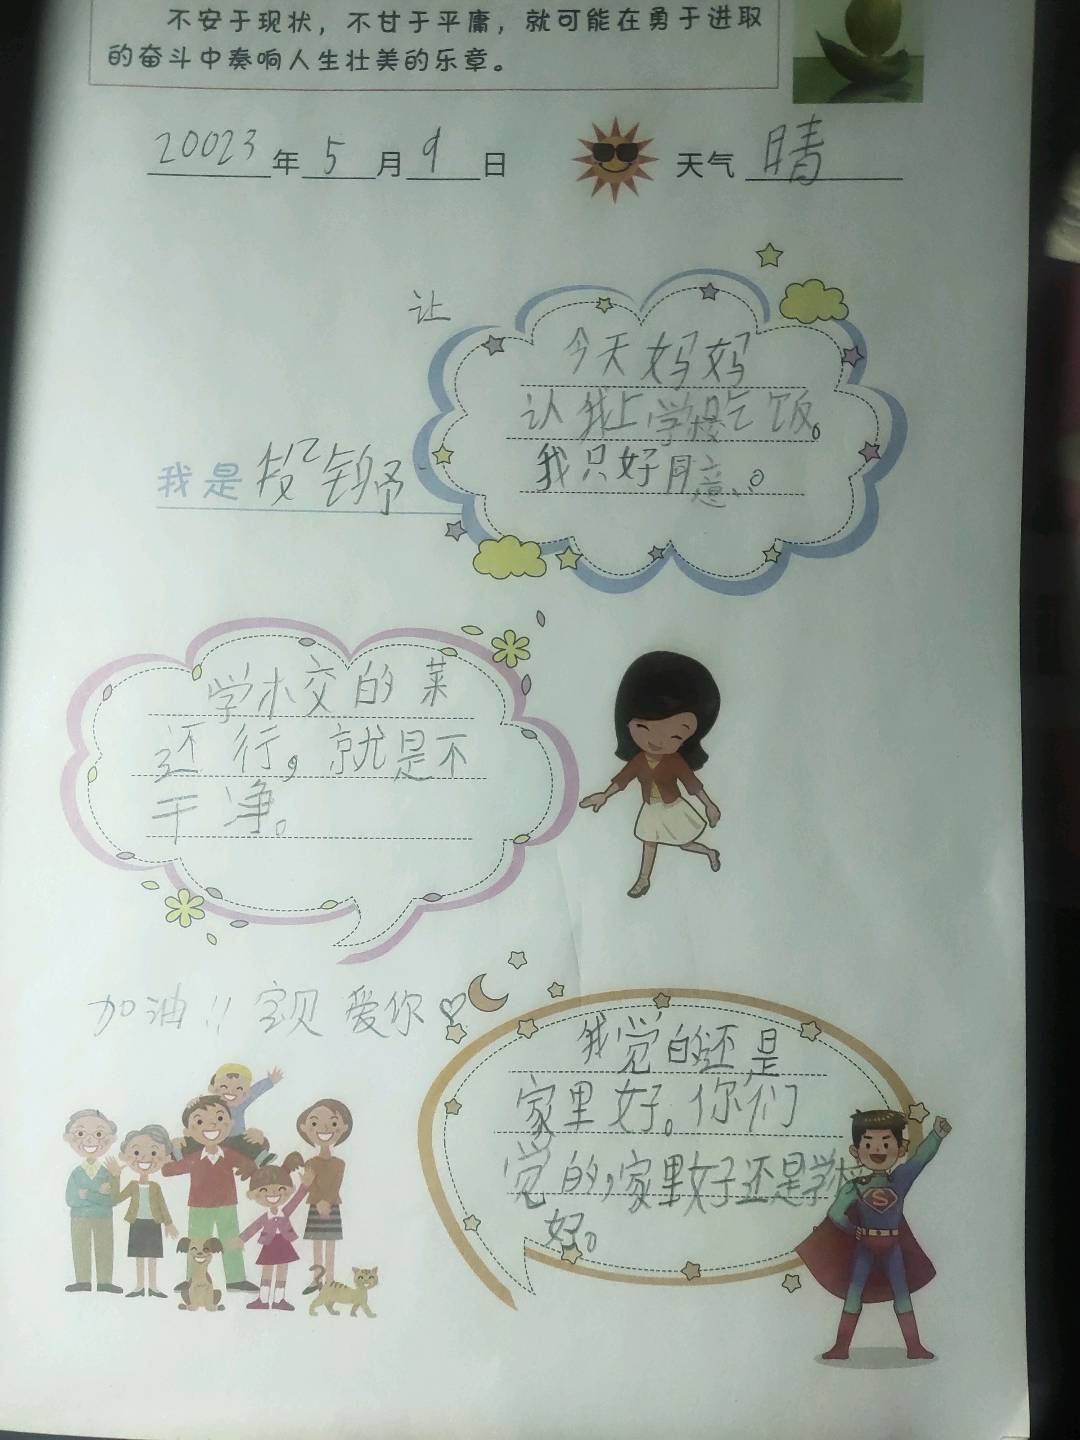 不安于现状，不甘于平庸，就可能在勇于进取
的奋斗中奏响人生壮美的乐章。
20023年5月9日 天气 晴
让
今天妈妈
认我上学校吃饭。
我只好同意。
我是段锦予
学校交的菜
还行，就是不
干净。
加油!! 宝贝 爱你♡
我觉的还是
家里好。你们
觉的，家里好还是学校
好。
S